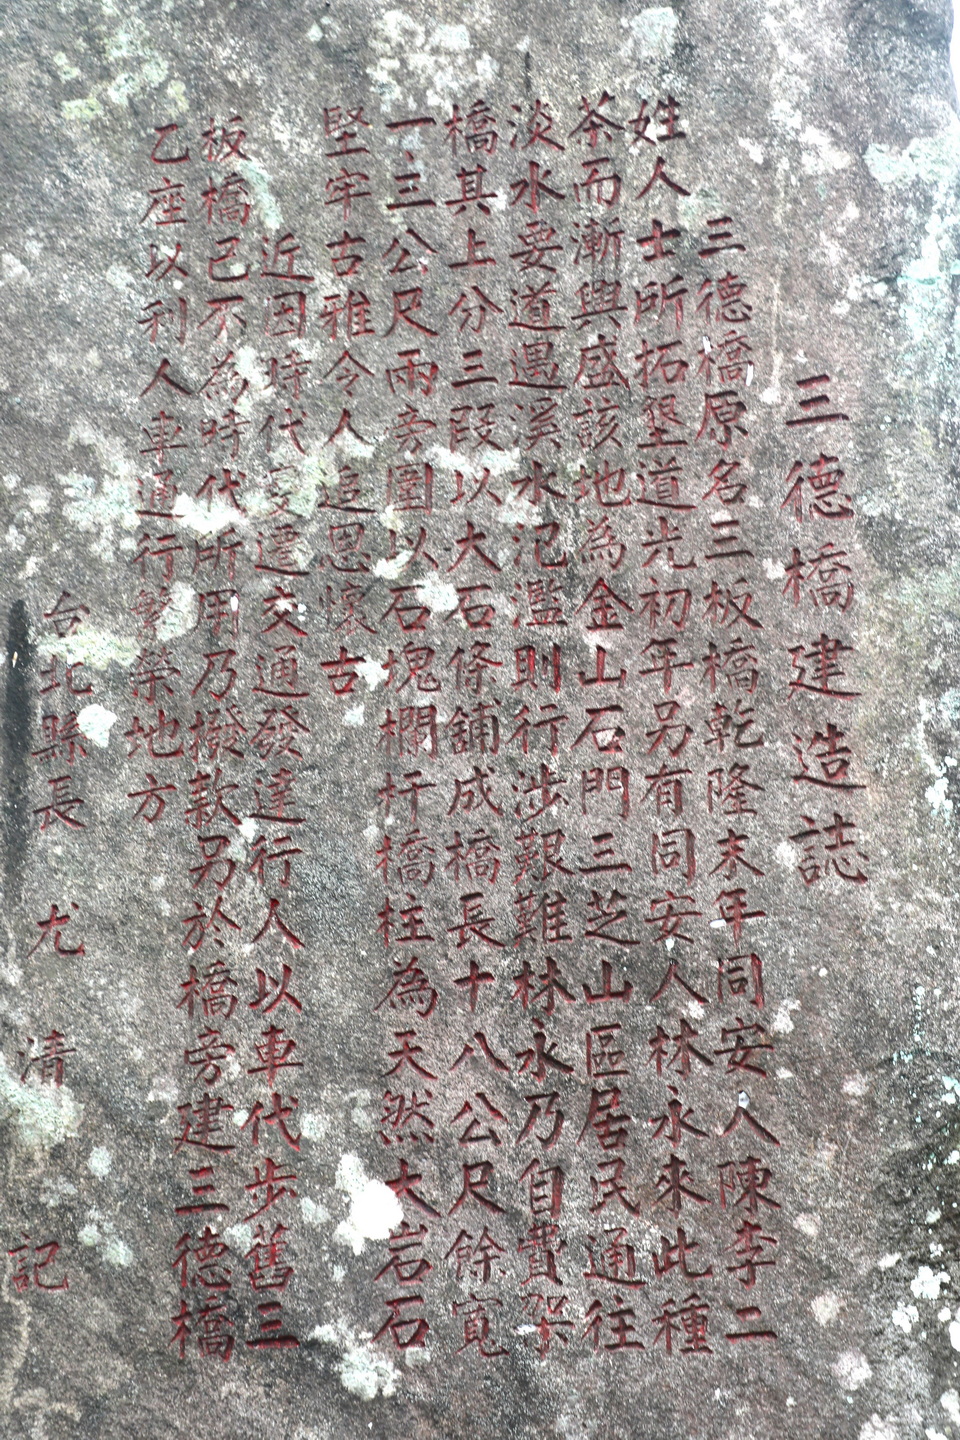 三德橋建造誌
三德橋原名三板橋乾隆末年同安人陳李二
姓人士所拓墾道光初年另有同安人林永來此種
茶而漸興盛該地為金山石門三芝山區居民通往
淡水要道遇溪水氾濫則行涉艱難林永乃自費架
橋其上分三段以大石條舖成橋長十八公尺餘寬
一三公尺兩旁圍以石塊欄圩橋柱為天然大岩石
堅牢古雅令人追思懷古
近因時代變遷交通發達行人以車代步舊三
板橋已不為時代所用乃撥款另於橋旁建三德橋
乙座以利人車通行繁榮地方
台北縣長 尤 清 記